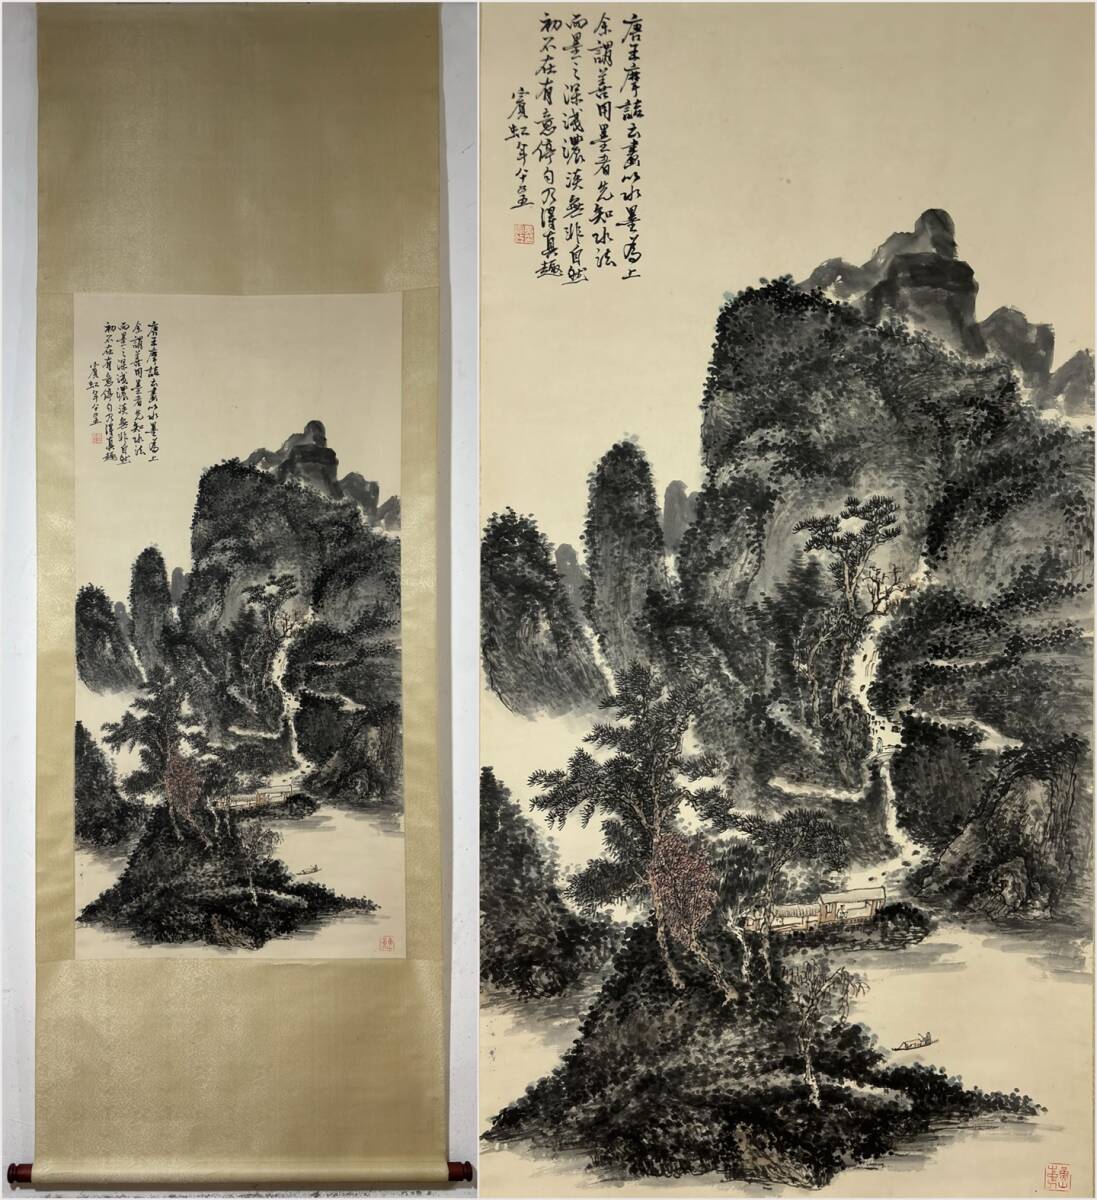 唐王摩詰云畫以水墨為上
余謂善用墨者先知水法
而墨之深淺濃淡無非自然
初不在有意停勻乃得真趣
賓虹年八十五
唐王摩詰云畫以水墨為上
余謂善用墨者先知水法
而墨之深淺濃淡無非自然
初不在有意停勻乃得真趣
賓虹年八十五